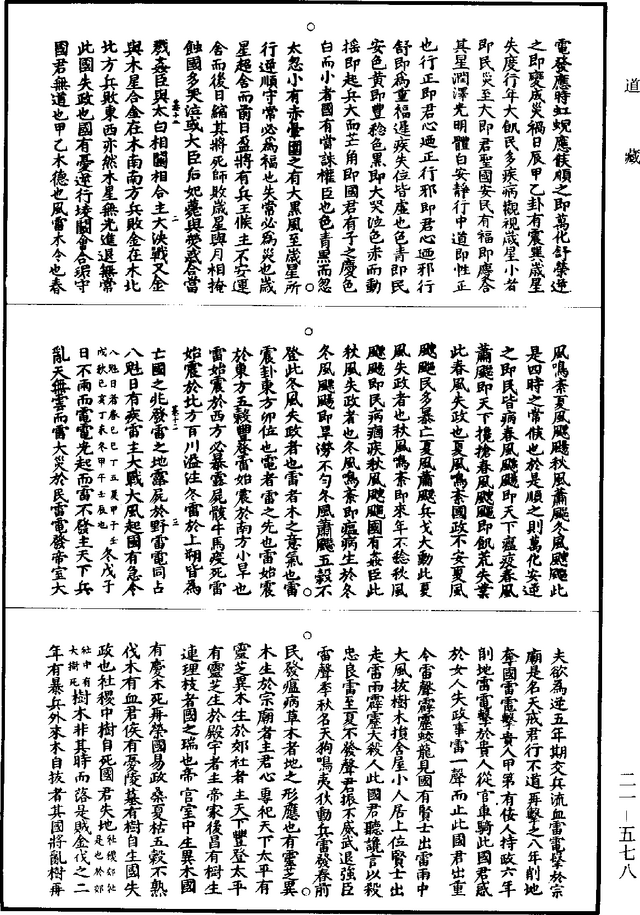 道藏
電發應時虹蜺應候順之即萬化舒榮逆
之即變成災禍日辰甲乙卦有震巽歲星
失度行年大飢民多疾病觀視歲星小者
即民災至大即君聖國安民有福即慶合
其星潤澤光明體白安靜行中道即性正
也行正即君心逈正行邪即君心逈邪行
舒即為重福遲疾失位皆虛也色青即民
安色黃即豐稔色黑即大哭泣色赤而動
摇即起兵大而芒角即國君有子之慶色
白而小者國有當誅權臣也色青黑而忽
太忽小有赤暈圍之有大黑風至歲星所
行逆順守常必為福也失常必為災也歲
星超舍而前日盈將有兵王候主不安連
舍而後日縮其將死師敗歲星與月相掩
蝕國多哭泣或大臣后妃薨與熒或合當
戮姦臣與太白相鬭相合主大決戰又金
與木星合金在木南南方兵敗金在木北
北方兵敗東西亦然木星無光進退無常
此國失政也國有憂逆行堎鬭會合須守
國君無道也甲乙木德也風雷木令也春
風鳴紊夏風飂飂秋風蕭飂冬風飂飂此
是四時之常候也於是順之則萬化安逆
之即民皆病春風飂飂即天下瘟疫春風
蕭飂即天下攙搶春風飂飂即飢荒失業
此春風失政也夏風鳴紊國政不安夏風
飂飂民多暴亡夏風蕭飂兵戈大動此夏
風失政者也秋風鳴紊即來年不稔秋風
飂飂即民病痼疾秋風飂飂國有姦臣此
秋風失政者也冬風鳴紊即瘟病生於冬
冬風飂飂即旱澇不匀冬風蕭飂五穀不
登此冬風失政者也雷者木之意氣也雷
震卦東方卯位也電者雷之先也雷始震
於東方五穀豐登雷始震於南方小旱也
雷始震於西方必暴露屍骸牛馬疫死雷
始震於北方百川溢注冬雷於上朔皆為
亡國之兆發雷之地露屍於野雷電同占
八魁日有疾雷主大戰大風起國有急令
八魁日者春己巳丁丑夏甲子壬
戌秋己亥丁未冬甲午壬辰也
冬戊子
日不雨而電電先起而雷不發主天下兵
亂天無雲而雷大災於民雷電發帝室大
夫欲為逆五年期交兵流血雷電擊於宗
廟是名天戒君行不道再擊之八年削地
奪國雷電擊貴人甲第有佞人持政六年
削地雷電擊於貴人從官車騎此國君感
於女人失政事雷一聲而止此國君出重
令雷聲霹靂蛟龍見國有賢士出雷雨中
大風拔樹木損舍屋小人居上位賢士出
走雷雨霹靂大殺人此國君聽讒言以殺
忠良雷至夏不發聲君振不威武退強臣
雷聲季秋名天狗鳴夷狄動兵雷發春前
民發瘟病草木者地之形應也有靈芝異
木生於宗廟者主君心專祀天下太平有
靈芝異木生於郊社者主天下豐登太平
有靈芝生於殿宇者主帝家後昌有樹生
連理枝者國之瑞也帝宫室中生異木國
有慶木死再榮國易政桑夏枯五穀不熟
伐木有血君侯有憂陵墓有樹自生國失
政也社稷中樹自死國君失地
社稷郊社
是也於郊
社中有
大樹死
樹木非其時而落是賊金伐之二
年有暴兵外來木自拔者其國將亂樹再
二一—五七八